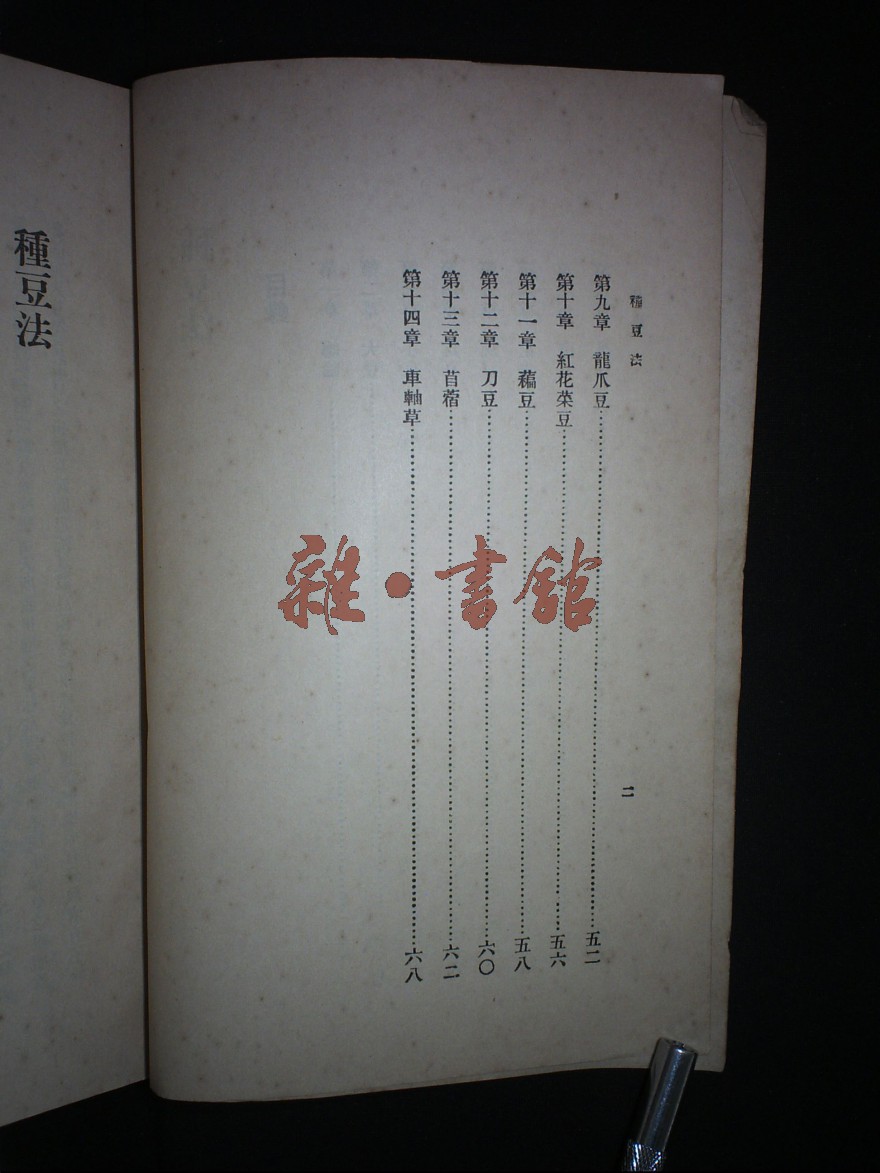 種豆法
二
第九章 龍爪豆……五二
第十章 紅花菜豆……五六
第十一章 藊豆……五八
第十二章 刀豆……六〇
第十三章 苜蓿……六二
第十四章 車軸草……六八
種豆法
雜·書館